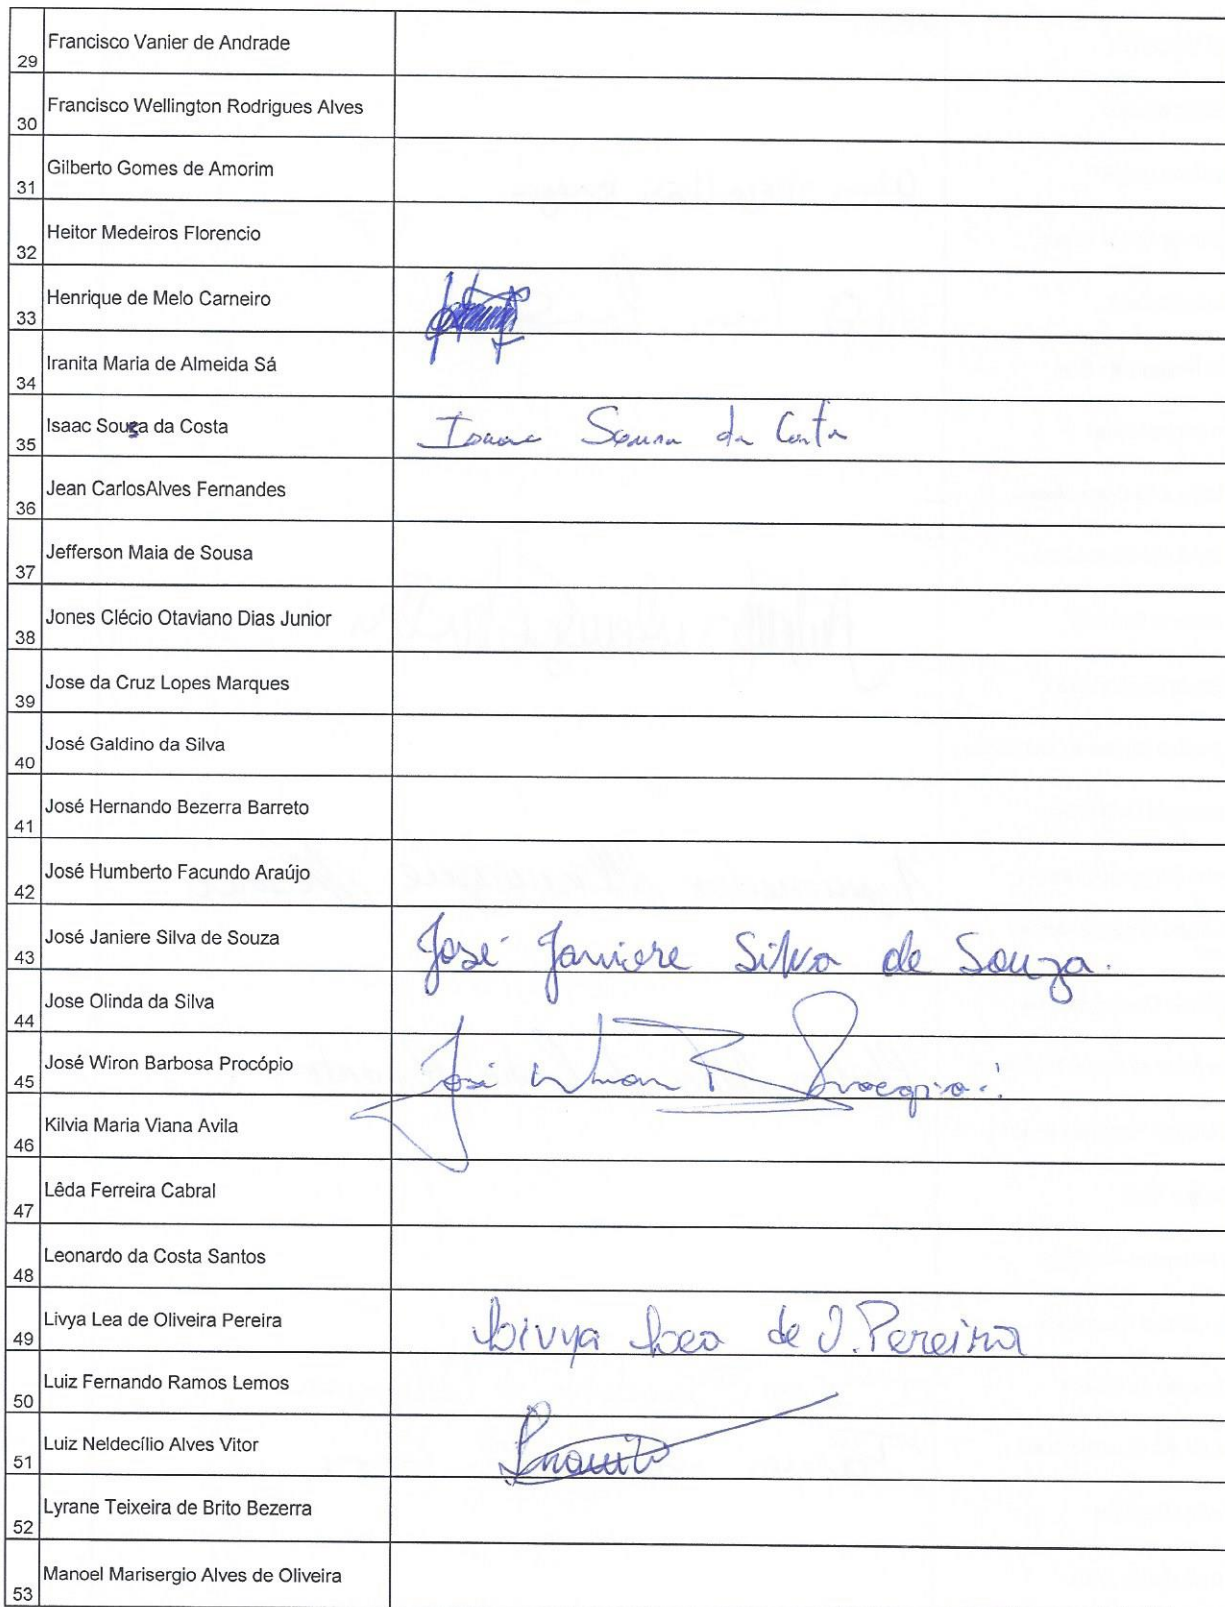 29 Francisco Vanier de Andrade
30 Francisco Wellington Rodrigues Alves
31 Gilberto Gomes de Amorim
32 Heitor Medeiros Florencio
33 Henrique de Melo Carneiro
34 Iranita Maria de Almeida Sá
35 Isaac Souza da Costa Isaac Sousa da Costa
36 Jean CarlosAlves Fernandes
37 Jefferson Maia de Sousa
38 Jones Clécio Otaviano Dias Junior
39 Jose da Cruz Lopes Marques
40 José Galdino da Silva
41 José Hernando Bezerra Barreto
42 José Humberto Facundo Araújo
43 José Janiere Silva de Souza José Janiere Silva de Souza.
44 Jose Olinda da Silva
45 José Wiron Barbosa Procópio José Wiron B Procópio
46 Kilvia Maria Viana Avila
47 Lêda Ferreira Cabral
48 Leonardo da Costa Santos
49 Livya Lea de Oliveira Pereira Livya Lea de O. Pereira
50 Luiz Fernando Ramos Lemos
51 Luiz Neldecílio Alves Vitor
52 Lyrane Teixeira de Brito Bezerra
53 Manoel Marisergio Alves de Oliveira